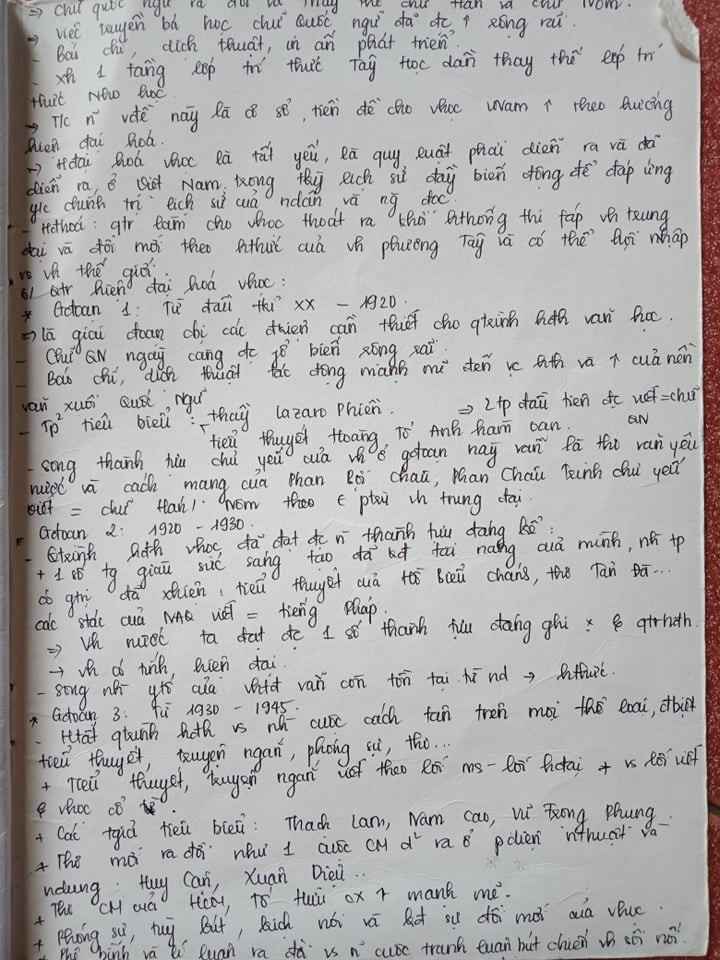 ⇒ chữ quốc ngữ ra đời và thay thế chữ Hán và chữ Nôm.
⇒ việc truyền bá học chữ Quốc ngữ đã đc ↑ rộng rãi.
- Báo chí, dịch thuật, in ấn phát triển.
- xh 1 tầng lớp trí thức Tây học dần thay thế lớp trí
thức Nho học.
→ T/c n~ vđề này là cơ sở, tiền đề cho vhọc VNam ↑ theo hướng
hiện đại hoá.
→ Hđại hoá vhọc là tất yếu, là quy luật phải diễn ra và đã
diễn ra, ở Việt Nam trong thkỳ lịch sử đầy biến động để đáp ứng
y/c chính trị lịch sử của ndân và
- Hđhoá: qtr làm cho vhọc thoát ra khỏi hthống thi pháp vh trung
đại và đổi mới theo hthức của vh phương Tây và có thể hội nhập
vs vh thế giới.
b/ Qtr hiện đại hoá vhọc:
* Gđoạn 1: Từ đầu tkỉ XX - 1920.
⇒ là giai đoạn cbị các đkiện cần thiết cho qtrình hđh văn học.
- Chữ QN ngày càng đc phổ biến rộng rãi.
- Báo chí, dịch thuật tác động mạnh mẽ đến vc hth và ↑ của nền
văn xuôi Quốc Ngữ
- Tp tiêu biểu: thầy Lazaro Phiền. ⇒ 2 tp đầu tiên đc viết = chữ QN
tiểu thuyết Hoàng Tố Anh hàm oan.
- song thành tựu chủ yếu của vh ở gđoạn này vẫn là thơ văn yêu
nước và cách mạng của Phan Bội Châu, Phan Châu Trinh chủ yếu
viết = chữ Hán, Nôm theo thi pháp vh trung đại.
* Gđoạn 2: 1920 - 1930.
- Qtrình hđh vhọc đã đạt đc n~ thành tựu đáng kể:
+ 1 số tg giàu sức sáng tạo đã kđ tài năng của mình, nh~ tp
có gtrị đã xhiện: tiểu thuyết của Hồ Biểu Chánh, thơ Tản Đà...
các stác của NAQ viết = tiếng Pháp.
⇒ Vh nước ta đạt đc 1 số thành tựu đáng ghi qtrhđh.
→ vh có tính hiện đại.
- song nh~ ytố của vhtđ vẫn còn tồn tại từ nd → hthức.
* Gđoạn 3: Từ 1930 - 1945.
- Htất qtrình hđh vs nh~ cuộc cách tân trên mọi thể loại, đbiệt
tiểu thuyết, truyện ngắn, phóng sự, thơ...
+ Tiểu thuyết, truyện ngắn viết theo lối ms - lối hđại ≠ vs lối viết
vhọc cổ
+ Các tgiả tiêu biểu: Thạch Lam, Nam Cao, Vũ Trọng Phụng
+ Thơ mới ra đời như 1 cuộc CM d² ra ở pdiện nthuật và
ndung: Huy Cận, Xuân Diệu..
+ Thơ CM của HCM, Tố Hữu ↑ mạnh mẽ.
+ Phóng sự, tuỳ bút, kịch nói và kđ sự đổi mới của vhọc.
+ Phê bình và lí luận ra đời vs n~ cuộc tranh luận bút chiến vh sôi nổi.